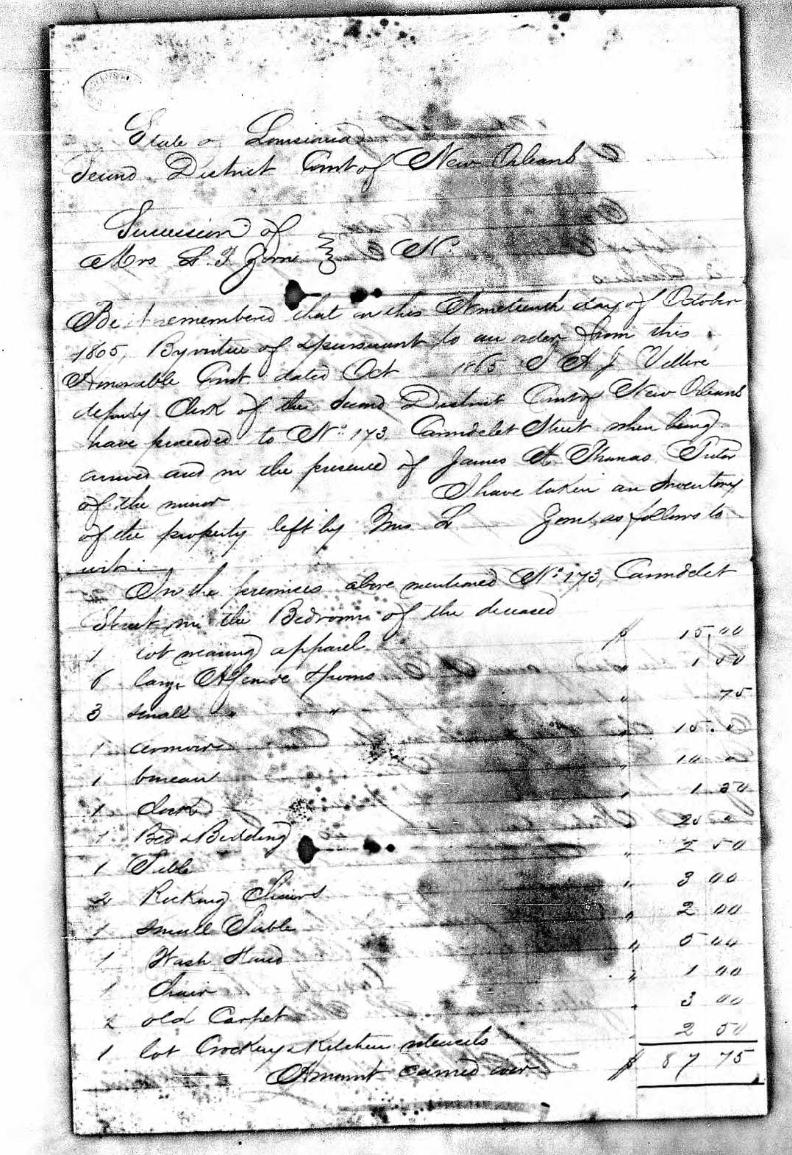 State of Louisiana
Second District Court of New Orleans
Succession of
Mrs. L. J. } No.
Be it remembered that on this Nineteenth day of October
1865, By virtue of & pursuant to an order from this
Honorable Court dated Oct 1865 I A. J. Villere
deputy Clerk of the Second District Court of New Orleans
have proceeded to No. 173, Carondelet Street when being
arrived and in the presence of James A. Thomas Tutor
of the minor I have taken an Inventory
of the property left by Mrs L as follows to
wit:
In the premises above mentioned No. 173, Carondelet
Street in the Bedroom of the deceased
1 lot wearing apparel $ 15.00
6 large Spoons " 1 50
3 small " " " 75
1 armoir " 15.0
1 bureau " 10 0
1 Clock " 1 50
1 Bed & Bedding " 25 0
1 Table " 2 50
2 Rocking Chairs " 3 00
1 small Table " 2 00
1 Wash Stand " 5 00
1 Chair " 1 00
2 old Carpet " 3 00
1 lot Crockery & Kitchen utensils " 2 50
Amount carried over $ 87 75